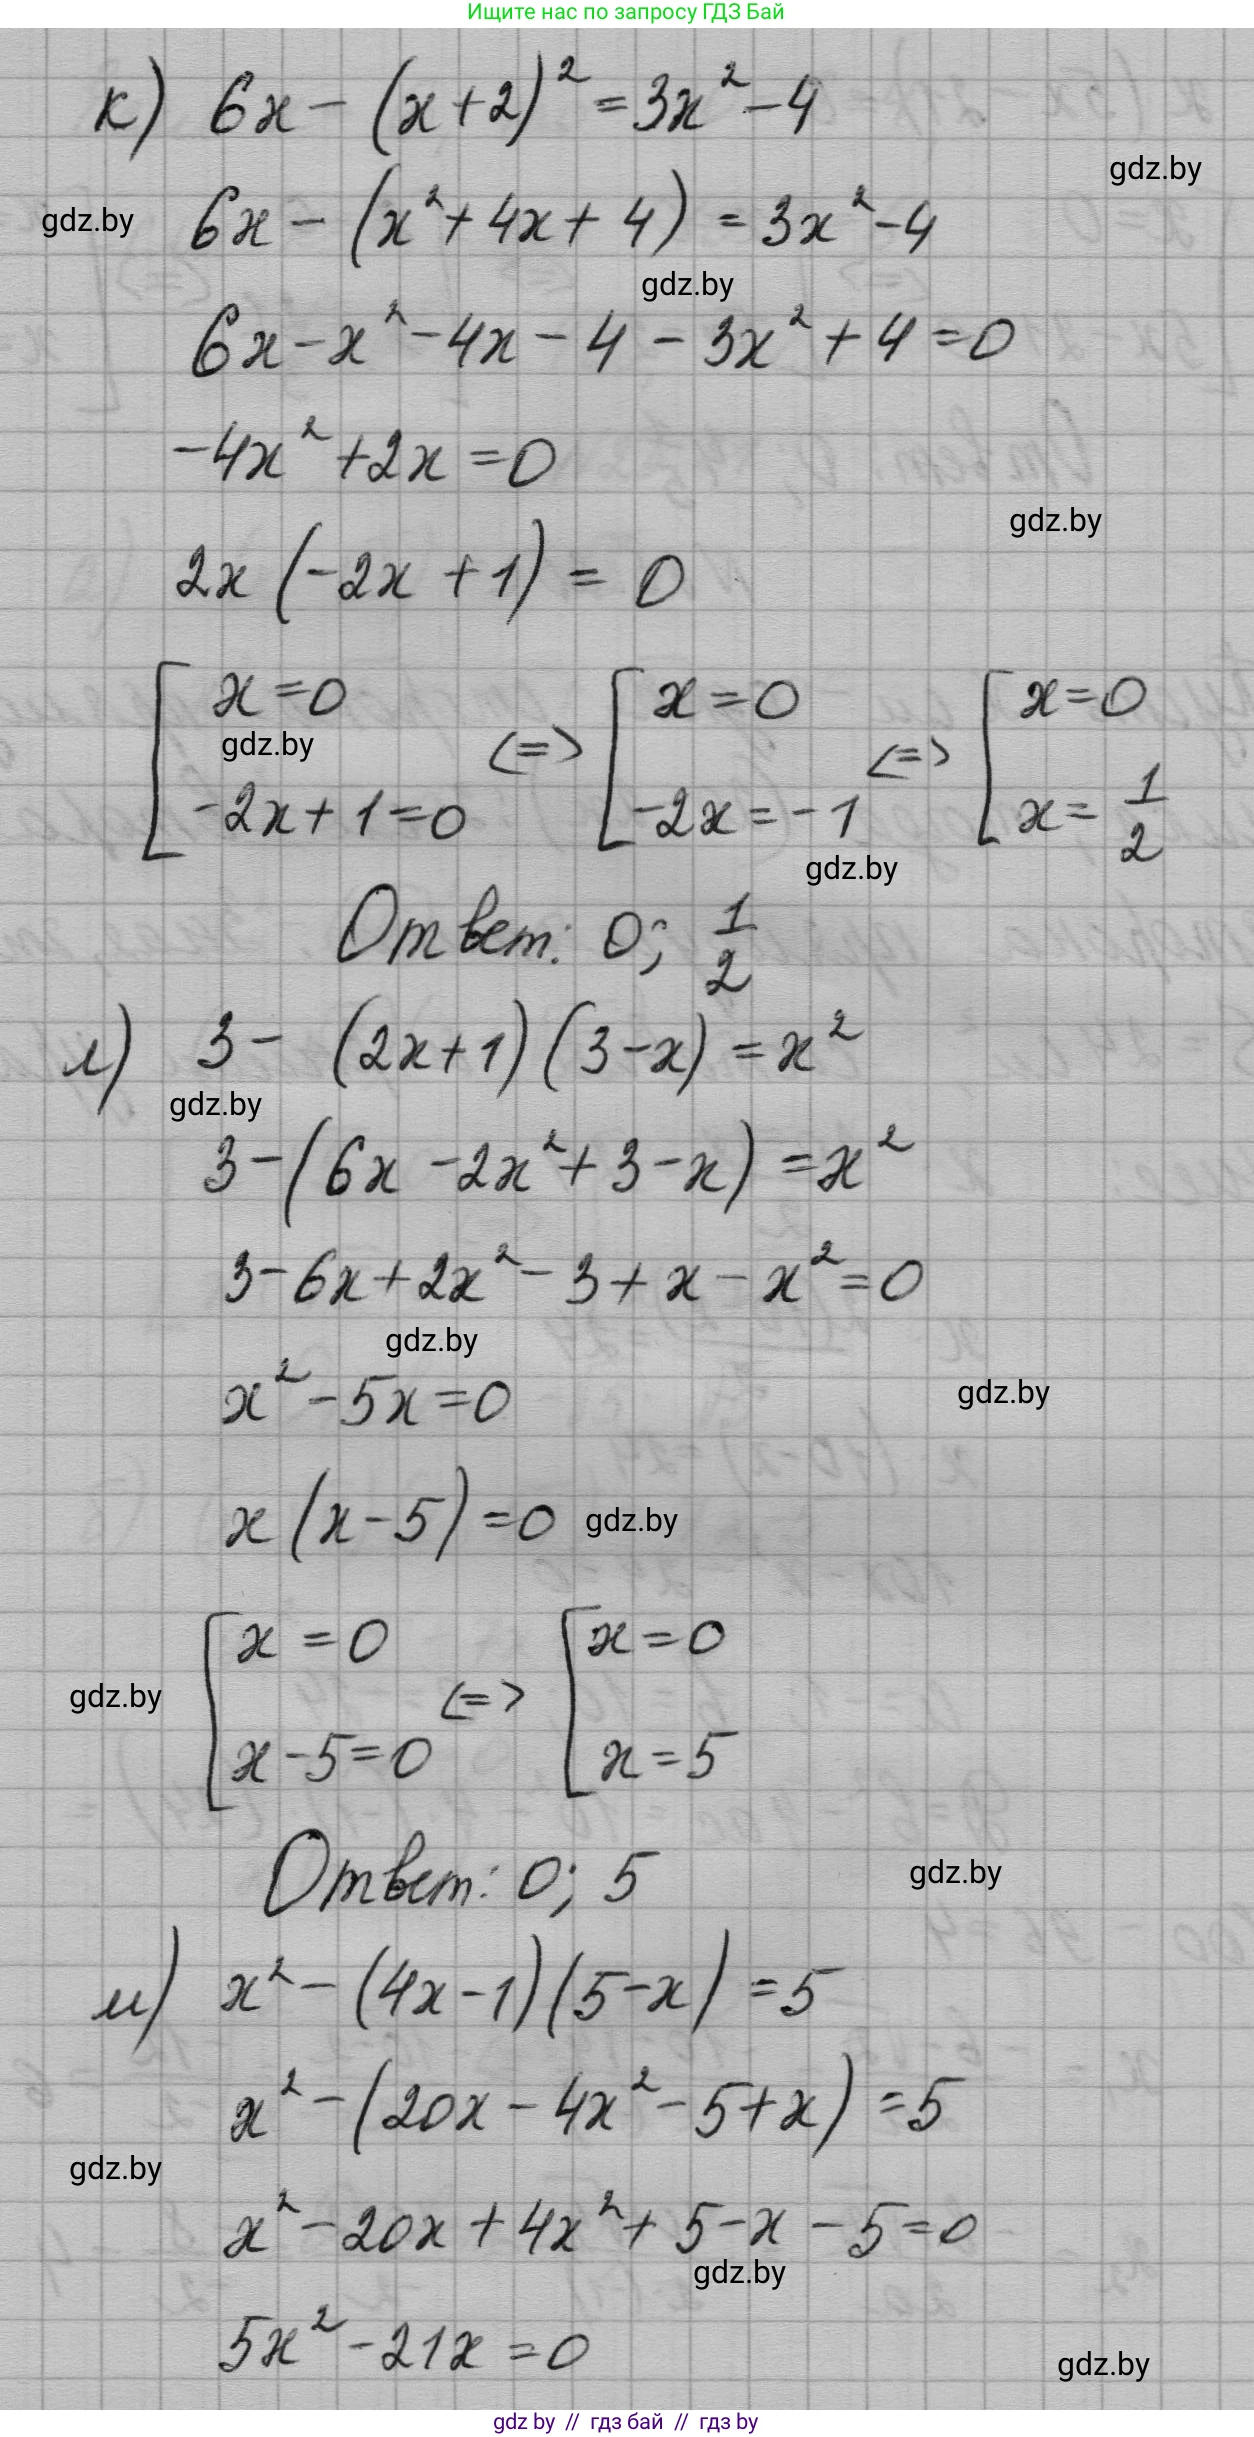 Ищите нас по запросу ГДЗ Бай
к) 6x - (x+2)² = 3x² - 4
gdz.by
gdz.by
6x - (x² + 4x + 4) = 3x² - 4
gdz.by
6x - x² - 4x - 4 - 3x² + 4 = 0
-4x² + 2x = 0
gdz.by
2x (-2x + 1) = 0
[ x = 0 <=> [ x = 0 <=> [ x = 0
gdz.by
-2x + 1 = 0 -2x = -1 x = 1/2
gdz.by
Ответ: 0; 1/2
л) 3 - (2x+1) (3-x) = x²
gdz.by
3 - (6x - 2x² + 3 - x) = x²
3 - 6x + 2x² - 3 + x - x² = 0
gdz.by
x² - 5x = 0
gdz.by
x (x - 5) = 0
gdz.by
[ x = 0 <=> [ x = 0
gdz.by
x - 5 = 0 x = 5
Ответ: 0; 5
gdz.by
м) x² - (4x - 1) (5 - x) = 5
x² - (20x - 4x² - 5 + x) = 5
gdz.by
x² - 20x + 4x² + 5 - x - 5 = 0
gdz.by
5x² - 21x = 0
gdz.by
gdz by // гдз бай // гдз by